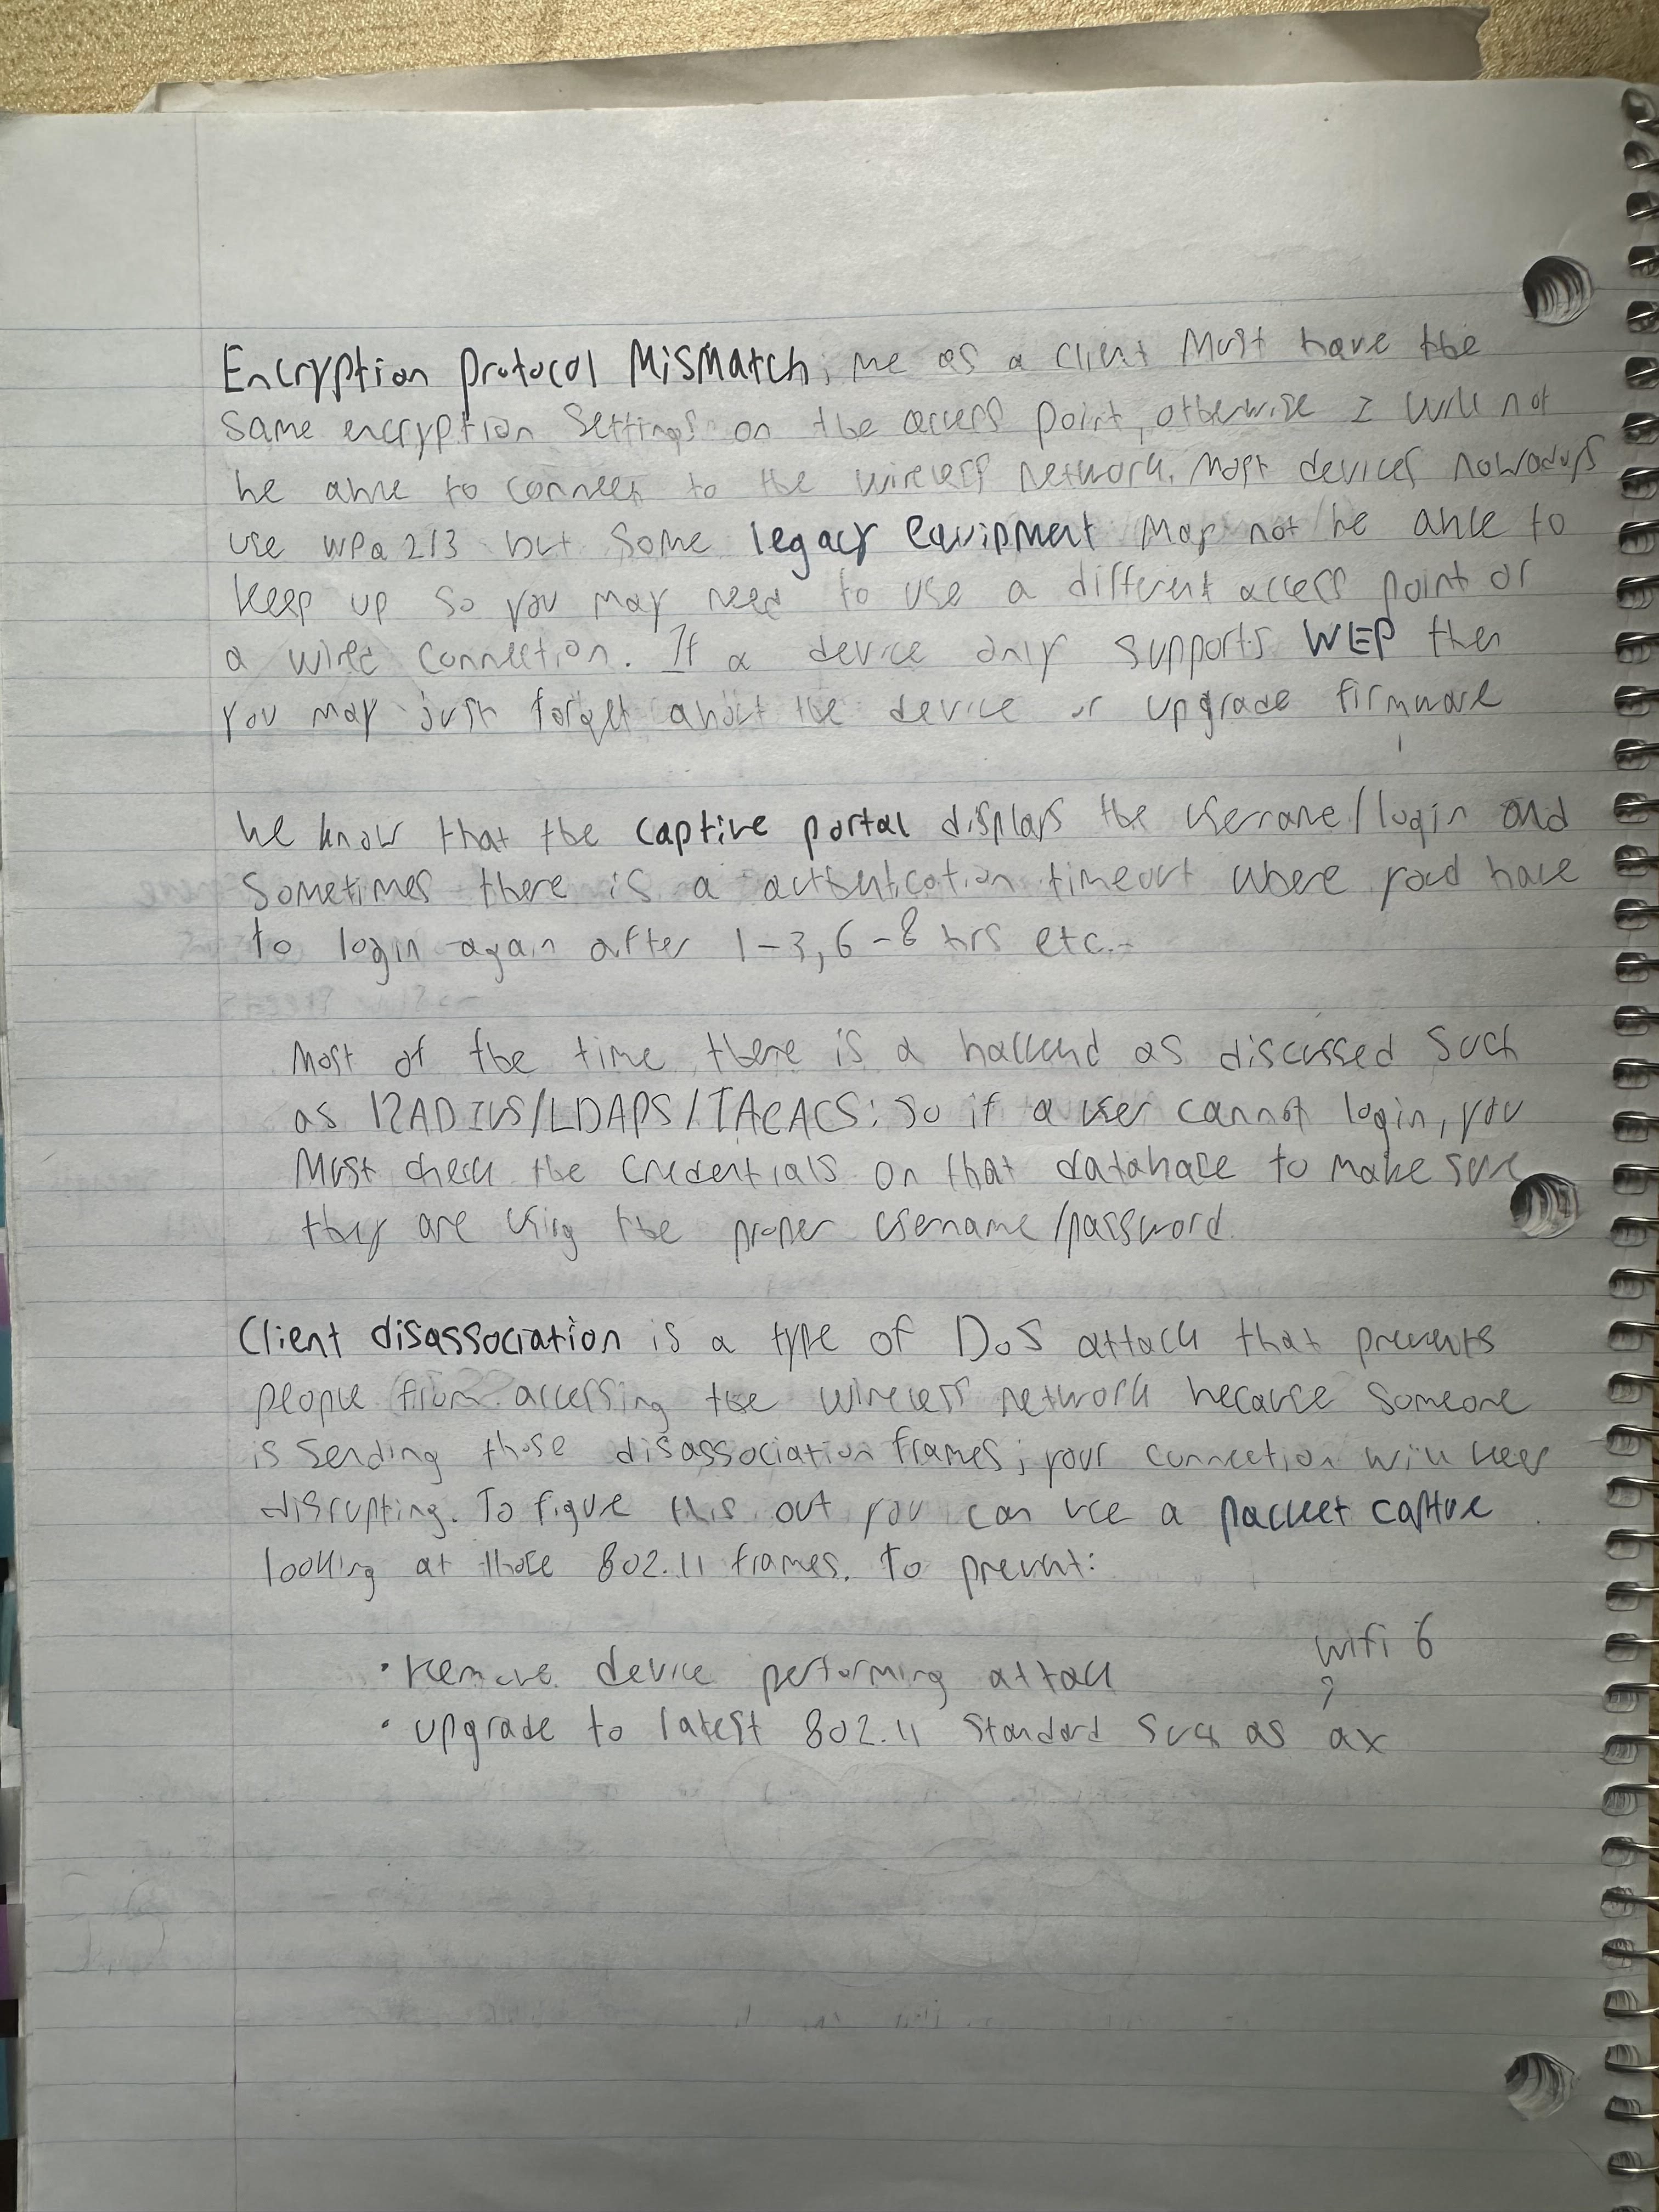 Encryption protocol Mismatch; me as a client Must have the
same encryption settings on the access point, otherwise I will not
be able to connect to the wireless network. Most devices nowadays
use wpa 2/3 but some legacy equipment may not be able to
keep up so you may need to use a different access point or
a wired connection. If a device only supports WEP then
you may just forget about the device or upgrade firmware
We know that the captive portal displays the username/login and
sometimes there is a authentication timeout where youd have
to login again after 1-3, 6-8 hrs etc.
Most of the time there is a backend as discussed such
as RADIUS/LDAPS/TACACS: So if a user cannot login, you
Must check the credentials on that database to make sure
they are using the proper username/password.
Client disassociation is a type of DoS attack that prevents
people from accessing the wireless network because someone
is sending those disassociation frames; your connection will keep
disrupting. To figure this out you can use a packet capture
looking at those 802.11 frames. To prevent:
wifi 6
• Remove device performing attack
• upgrade to latest 802.11 standard such as ax